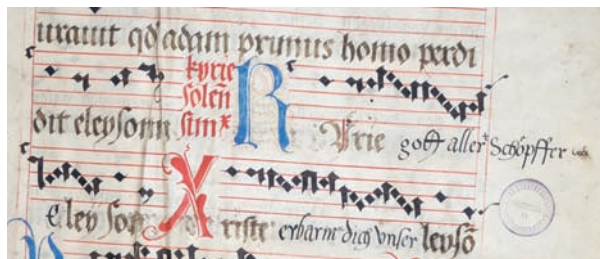 urauit qd adam primus homo perdi
kyrie
dit eleyson solen̄
stm̄ Kyrie gott aller Schöpffer
eleyson Xriste erbarm dich vnser leysō